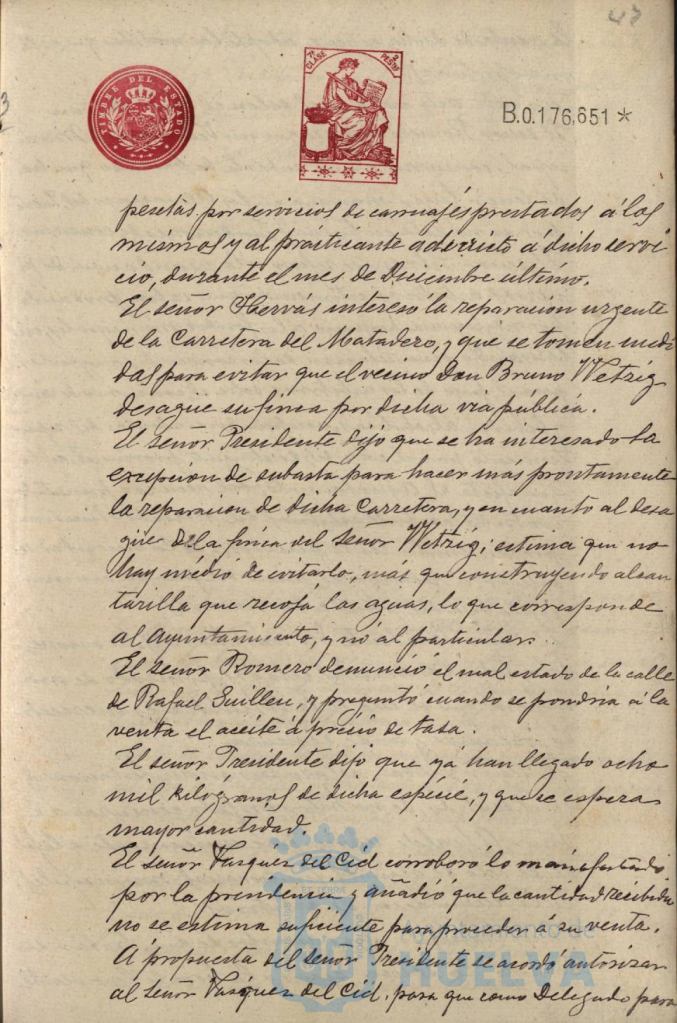 47
TIMBRE DEL ESTADO
7ª CLASE 2 PESTAS
B.0.176,651*
pesetas por servicios de carruajes prestados á los
mismos y al practicante adscrito á dicho servi
cio, durante el mes de Diciembre último.
El señor Hervás interesó la reparacion urgente
de la Carretera del Matadero, y que se tomen medi
das para evitar que el vecino Don Bruno Wetzig
desagüe su finca por dicha via pública.
El señor Presidente dijo que se ha interesado la
excepcion de subasta para hacer más prontamente
la reparacion de dicha Carretera, y en cuanto al desa
güe de la finca del señor Wetzig, estima que no
hay medio de evitarlo, más que construyendo alcan
tarilla que recoja las aguas, lo que corresponde
al Ayuntamiento, y nó al particular.
El señor Romero denunció el mal estado de la calle
de Rafael Guillen, y preguntó cuando se pondria á la
venta el aceite á precio de tasa.
El señor Presidente dijo que yá han llegado ocho
mil kilógramos de dicha espécie, y que se espera
mayor cantidad.
El señor Vasquez del Cid corroboró lo manifestado
por la presidencia y añadió que la cantidad recibida
no se estima suficiente para proceder á su venta.
A propuesta del señor Presidente se acordó autorizar
al señor Vasquez del Cid, para que como Delegado para
HUELVA